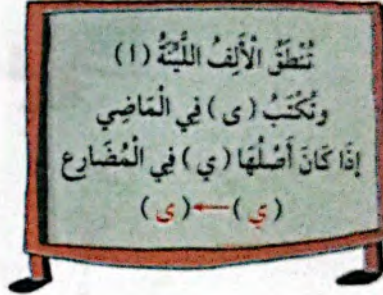 تُنْطَقُ الْأَلِفُ اللَّيِّنَةُ (ا)
وَتُكْتَبُ (ى) فِي الْمَاضِي
إِذَا كَانَ أَصْلُهَا (ي) فِي الْمُضَارِع
(ي) ← (ى)